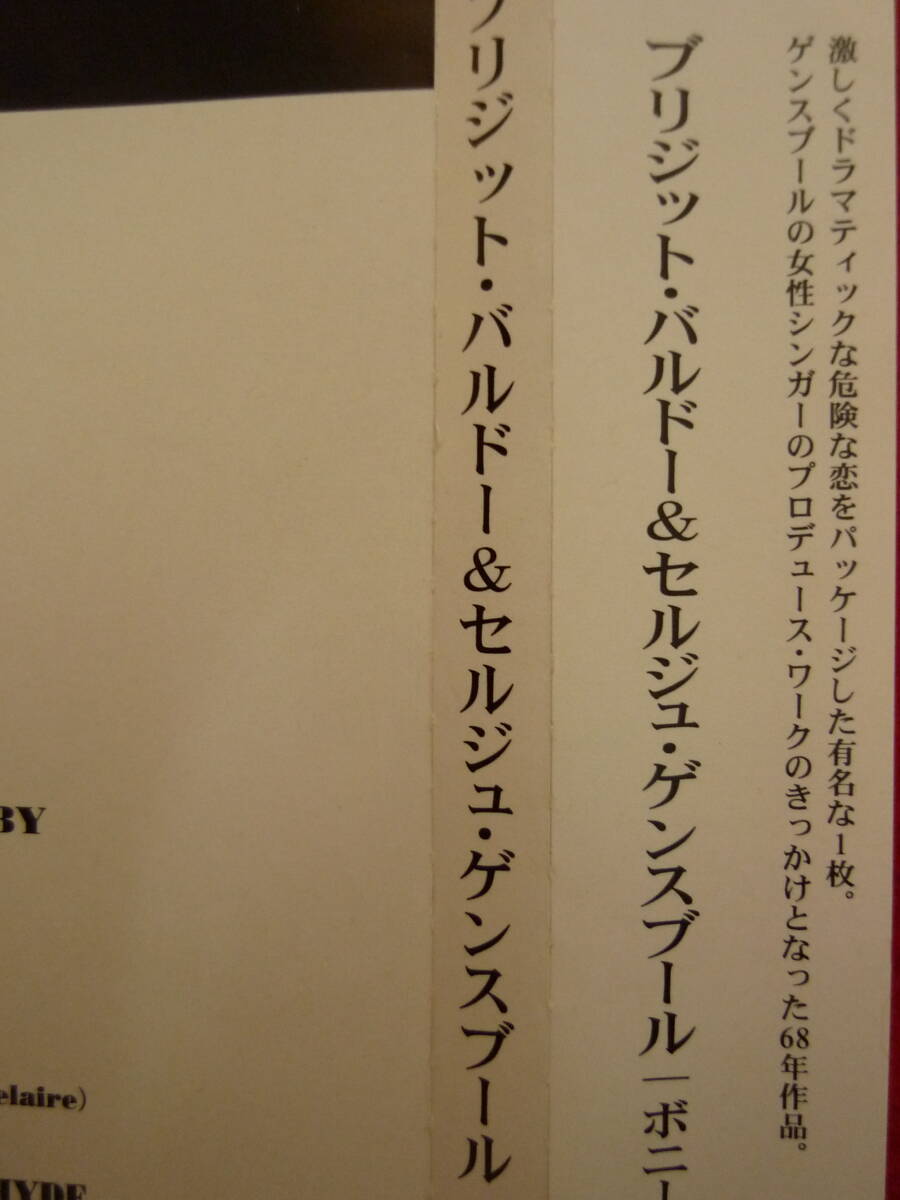 激しくドラマティックな危険な恋をパッケージした有名な1枚。
ゲンスブールの女性シンガーのプロデュース・ワークのきっかけとなった68年作品。
ブリジット・バルドー&セルジュ・ゲンスブール|ボニー
ブリジット・バルドー&セルジュ・ゲンスブール
BY
elaire)
HYDE